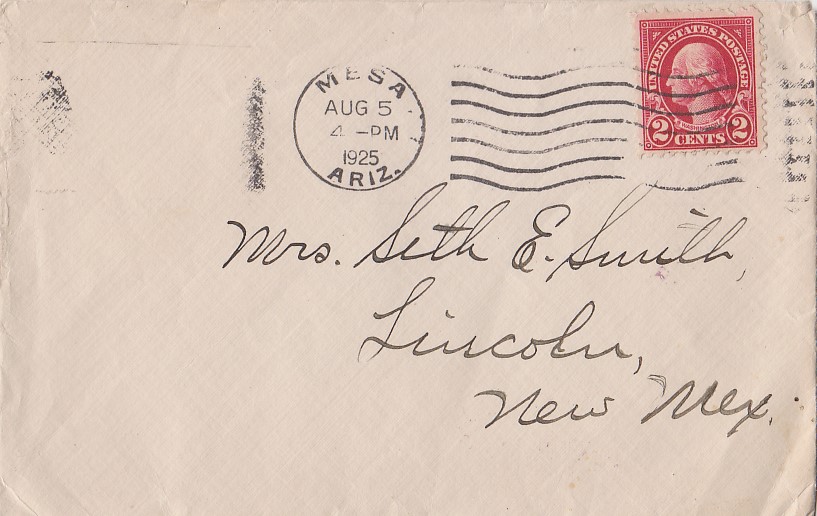 MESA
AUG 5
4 -PM
1925
ARIZ.
UNITED STATES POSTAGE
WASHINGTON
2 CENTS 2
Mrs. Seth E. Smith,
Lincoln,
New Mex.